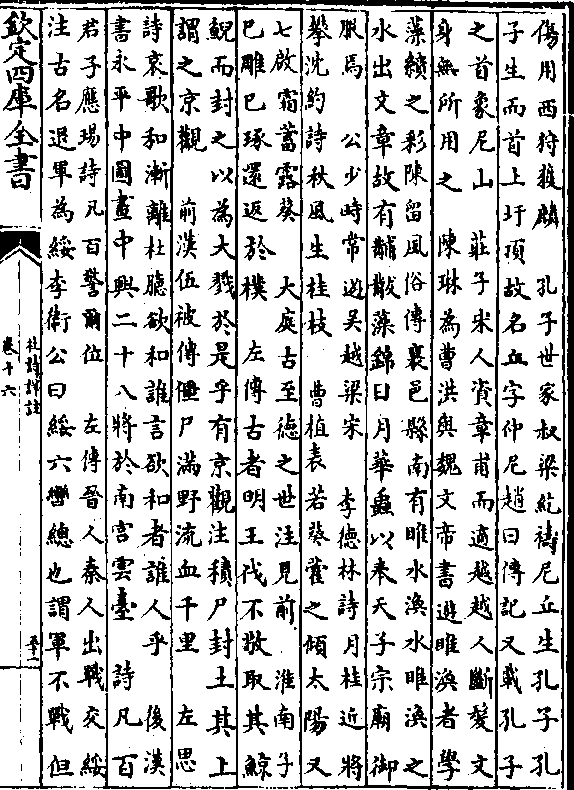 傷用西狩獲麟　孔子世家叔梁紇禱尼丘生孔子孔
子生而首上圩頂故名丘字仲尼趙曰傳記又載孔子
之首象尼山　莊子宋人資章甫而適越越人斷髮文
身無所用之　陳琳為曹洪與魏文帝書遊睢渙者學
藻繢之彩陳留風俗傳襄邑縣南有睢水渙水睢渙之
水出文章故有黼黻藻錦日月華蟲以奉天子宗廟御
服焉　公少時常遊吳越梁宋　李德林詩月桂近將
攀沈約詩秋風生桂枝　曹植表若葵藿之傾太陽又
七啟霜蓄露葵　大庭古至德之世注見前　淮南子
已雕已琢還返於樸　左傳古者明王伐不敬取其鯨
鯢而封之以為大戮於是乎有京觀注積尸封土其上
謂之京觀　前漢伍被傳僵尸滿野流血千里　左思
詩哀歌和漸離杜臆欲和誰言欲和者誰人乎　後漢
書永平中圖畫中興二十八將於南宮雲臺　詩凡百
君子應瑒詩凡百警爾位　左傳晉人秦人出戰交綏
注古名退軍為綏李衛公曰綏六轡總也謂軍不戰但
欽定四庫全書
杜詩詳註
卷十六
五十一